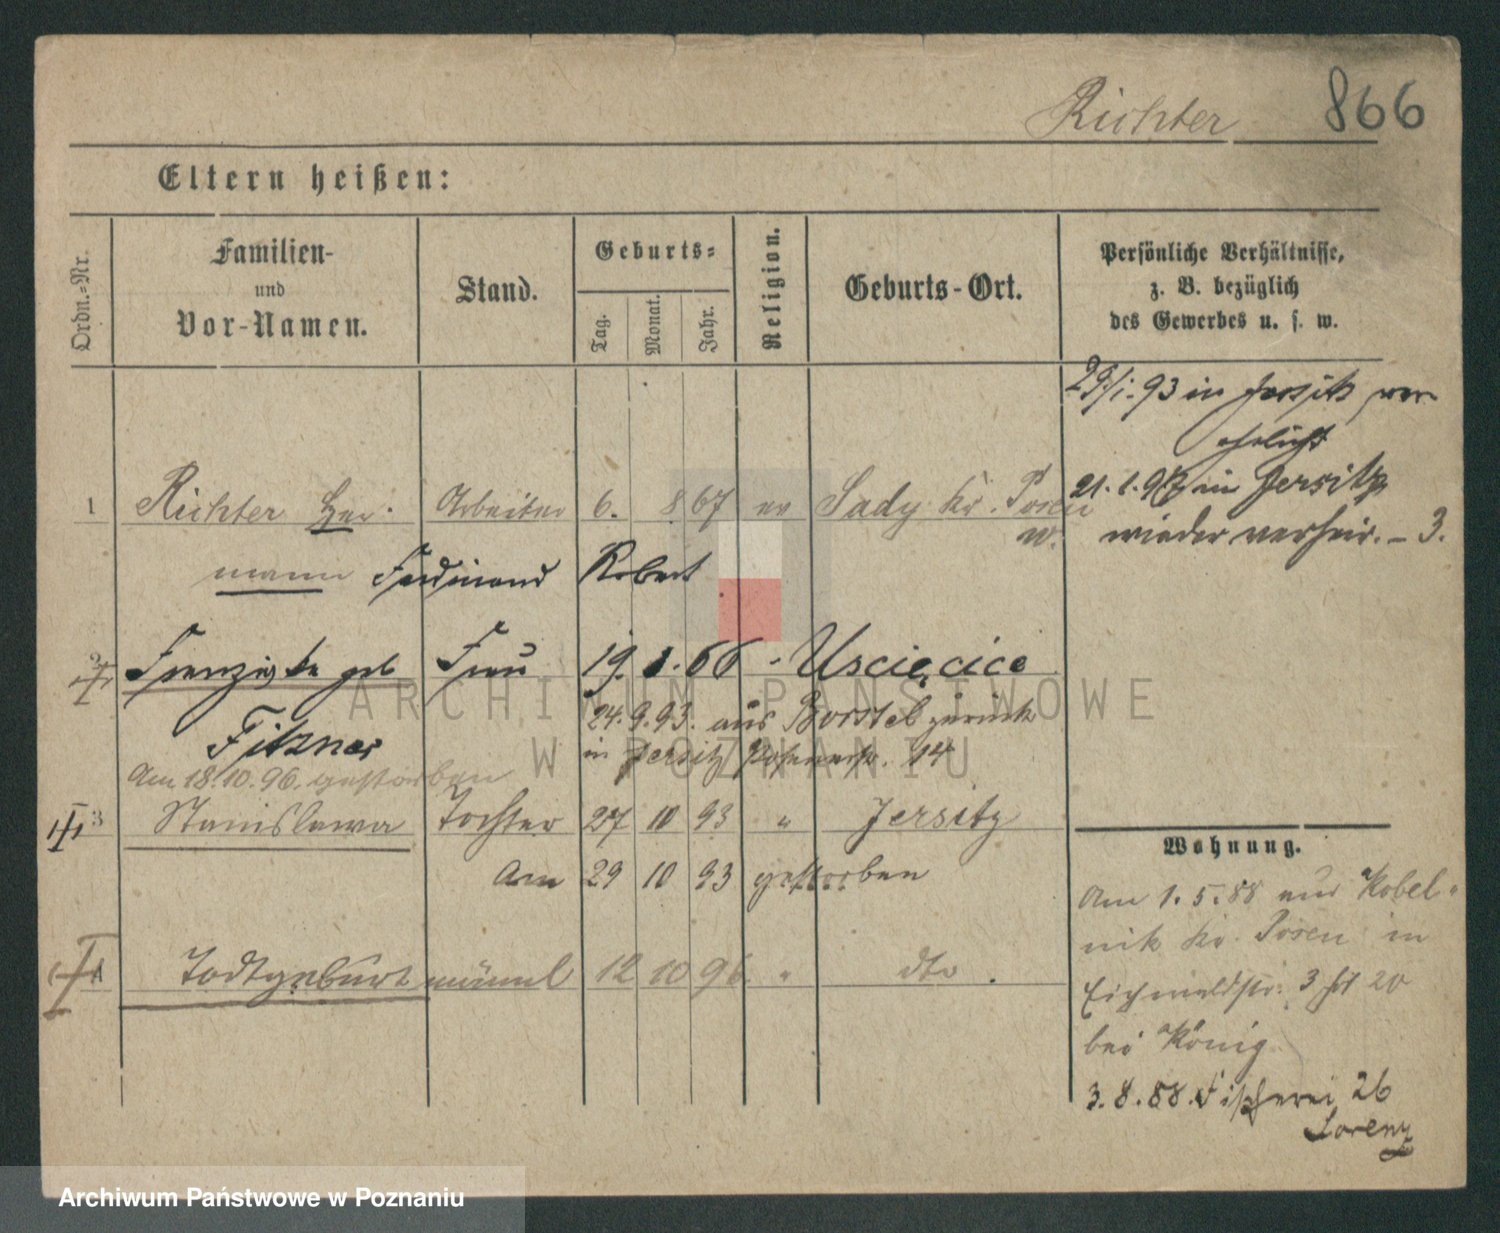 Richter 866
Eltern heißen:
Ordn.-Nr.
Familien- und Vor-Namen.
Stand.
Geburts-
Tag. Monat. Jahr.
Religion.
Geburts-Ort.
Persönliche Verhältnisse,
z. B. bezüglich
des Gewerbes u. s. w.
29/1.93 in Jersitz ver-
ehelicht
1 Richter Her- Arbeiter 6. 8 67 ev Sady Kr. Posen
W.
21.1.97 in Jersitz
wieder verheir. - 3.
mann Ferdinand Robert
2 Franziska geb Frau 19. 1. 66 - Uscięcice
24.9.93. aus Borstel zurück
Fitzner
in Jersitz 14
Am 18.10.96. gestorben
3 Stanislawa Tochter 27 10 93 " Jersitz
Am 29 10 93 gestorben
4 Todtgeburt männl 12 10 96 " dto.
Wohnung.
Am 1.5.88 aus Kobel-
nik Kr. Posen in
Eichwaldstr. 3 20
bei König
3.8.88. Fischerei 26
Lorenz
ARCHIWUM PAŃSTWOWE
W POZNANIU
Archiwum Państwowe w Poznaniu